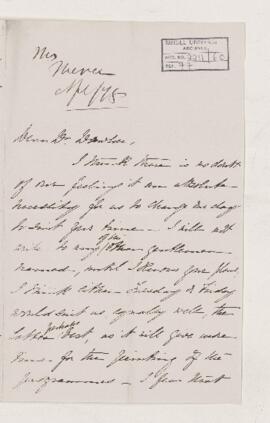 Mrs
Mercer
Apl/78
McGILL UNIVERSITY
ARCHIVES
ACC. NO.
REF.
Dear Dr. Dawson,
I think there is no doubt
of our feeling it an absolute
necessity for us to change our day
to suit your time - I will not
write to any of the other gentlemen
named, until I know your plans,
I think either Tuesday or Friday
would suit us equally well, the
latter perhaps best, as it will give more
time for the printing of the
programmes - I fear that